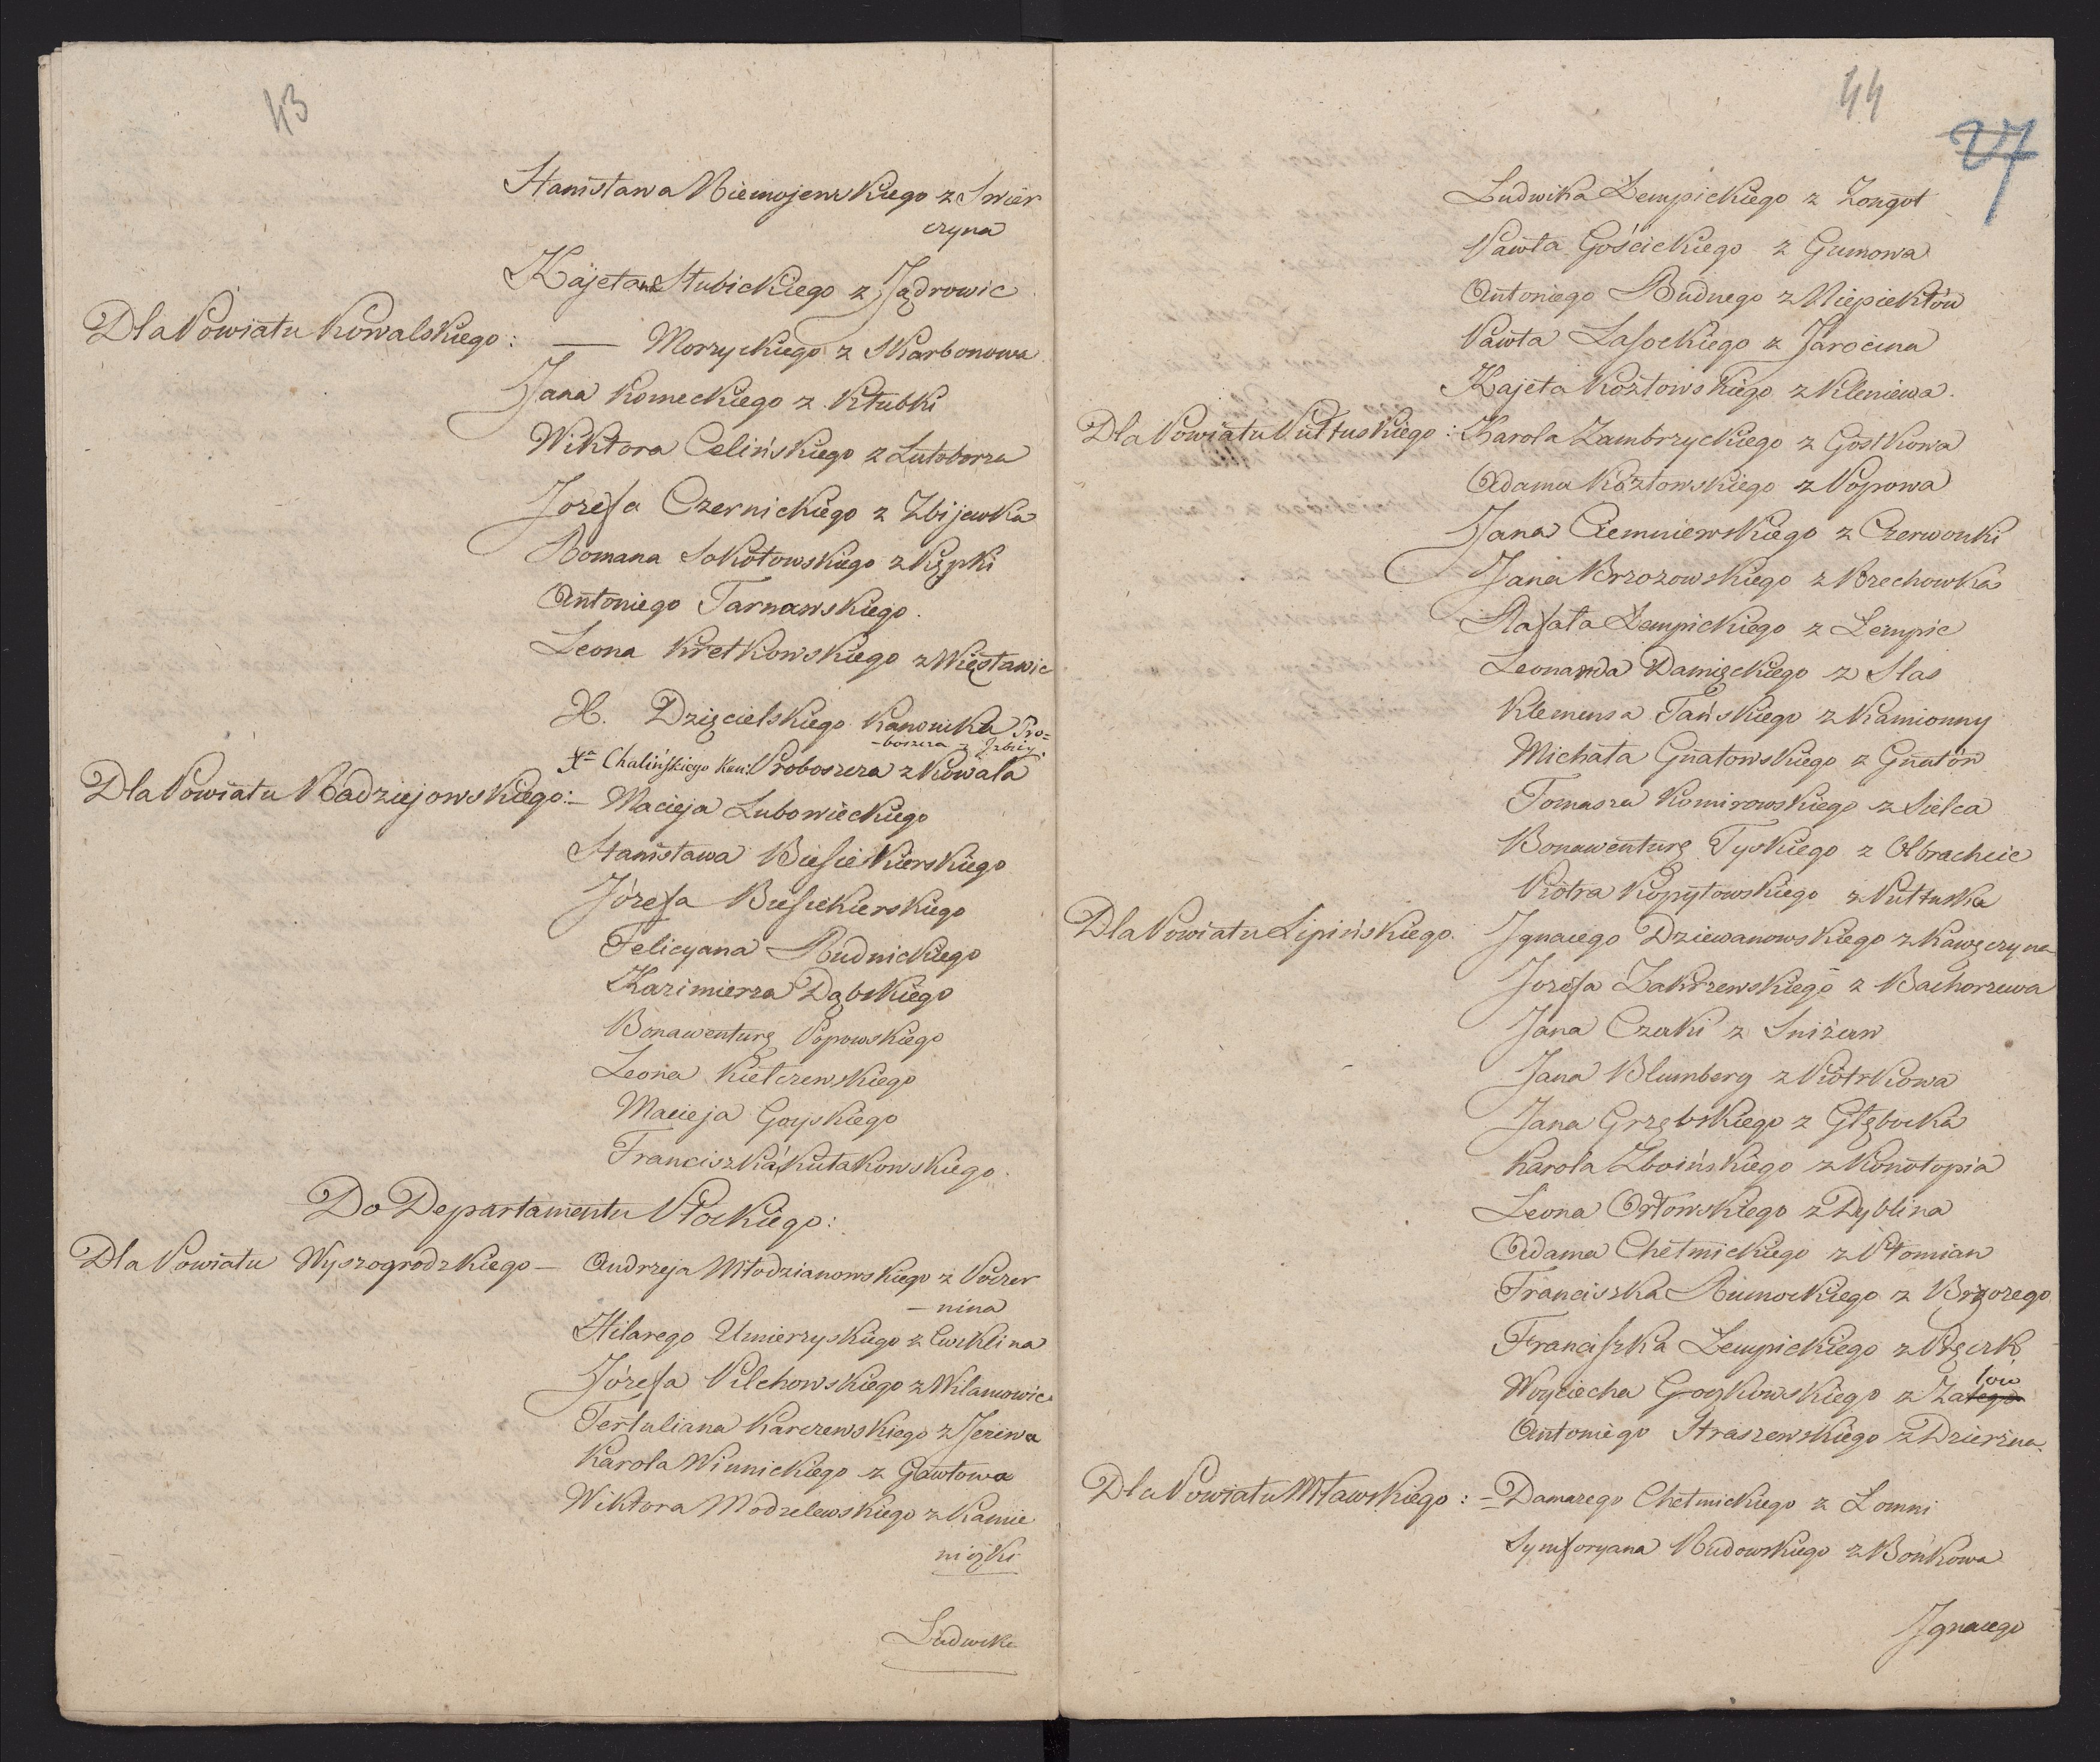 43
Stanisława Niemojewskiego z Swier
czyna
Kajetana Słubickiego z Jądrowic
Dla Powiatu Kowalskiego: — Morzyckiego z Skarbonowa
Jana Komeckiego z Kłubki
Wiktora Celińskiego z Lutoborza
Jozefa Czernickiego z Zbijewka
Romana Sokołowskiego z Kępki
Antoniego Tarnawskiego.
Leona Kretkowskiego z Więsławic
X. Dzięcielskiego Kanonika Pro=
-boszcza z Izbicy.
Xa Chalińskiego Kan: Proboszcza z Kowala
Dla Powiatu Radziejowskiego:- Macieja Lubowieckiego
Stanisława Biesiekierskiego
Józefa Biesiekierskiego
Felicyana Rudnickiego
Kazimierza Dąbskiego
Bonawenturę Popowskiego
Leona Kiełczewskiego
Macieja Goyskiego
Franciszka Kułakowskiego.
Do Departamentu Płockiego:
Dla Powiatu Wyszogrodzkiego — Andrzeja Młodzianowskiego z Poczer
— nina
Hilarego Umierzyskiego z Cwiklina
Józefa Pilchowskiego z Wilamowic
Tertuliana Karczewskiego z Jeziwa
Karola Winnickiego z Gawłowa
Wiktora Modzelewskiego z Kamie
niczki
Ludwika
44
27
Ludwika Łempickiego z Zongot
Pawła Gościckiego z Gumowa
Antoniego Budnego z Niepiekłów
Pawła Lasockiego z Jarocina
Kajeta Kozłowskiego z Kleniewa.
Dla Powiatu Pułtuskiego: Karola Zambrzyckiego z Gostkowa
Adama Kozłowskiego z Popowa
Jana Ciemniewskiego z Czerwonki
Jana Brzozowskiego z Brzechowka
Rafała Łempickiego z Łempic
Leonarda Damięckiego z Slas
Klemensa Tańskiego z Kamionny
Michała Gnatowskiego z Gnatów
Tomasza Komirowskiego z Sielca
Bonawenturę Tyskiego z Olbrachcic
Piotra Kopytowskiego z Pułtuska
Dla Powiatu Lipińskiego. Ignacego Dziewanowskiego z Kawęczyna
Jozefa Zakrzewskiego z Bachorzewa
Jana Czerki z Sniżew
Jana Blumberg z Piotrkowa
Jana Grzębskiego z Głębocka
Karola Zboińskiego z Konotopia
Leona Orłowskiego z Dyblina
Adama Chełmickiego z Płomian
Franciszka Rumockiego z Brzozego
Franciszka Łempickiego z Pręczk
Woyciecha Gozkowskiego z Zalego
low
Antoniego Straszewskiego z Dzierżna.
Dla Powiatu Mławskiego: - Damazego Chełmickiego z Łomni
Symforyana Rudowskiego z Bońkowa
Ignacego